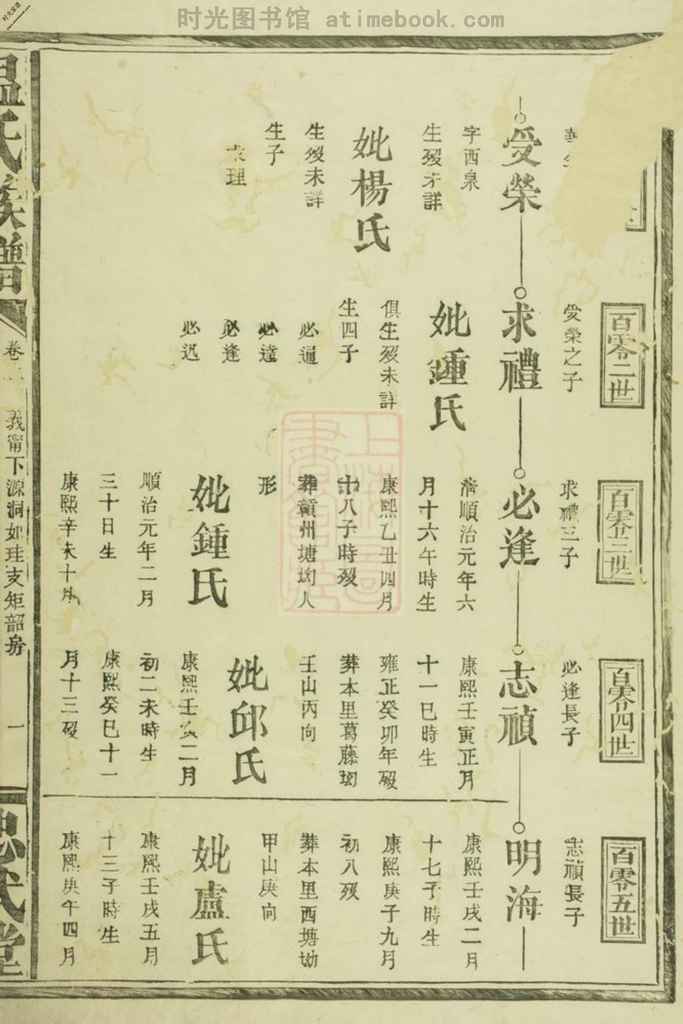 时光图书馆 atimebook.com
受榮
字西泉
生歿未詳
妣楊氏
生歿未詳
生子
百零二世
受榮之子
求禮
妣鍾氏
俱生歿未詳
生四子
必逼
必達
必逢
必迅
百零三世
求禮三子
必逢
清順治元年六
月十六午時生
康熙乙丑四月
十八子時歿
葬贛州塘坳人
形
妣鍾氏
順治元年二月
三十日生
康熙辛未十月
百零四世
必逢長子
志禎
康熙壬寅正月
十一巳時生
雍正癸卯年歿
葬本里葛藤坳
壬山丙向
妣邱氏
康熙壬亥二月
初二未時生
康熙癸巳十一
月十三歿
百零五世
志禎長子
明海
康熙壬戌二月
十七子時生
康熙庚子九月
初八歿
葬本里西塘坳
甲山庚向
妣盧氏
康熙壬戌五月
十三子時生
康熙庚午四月
溫氏族譜
卷
義甯下源洞如珪支矩韶房
一
忠武堂